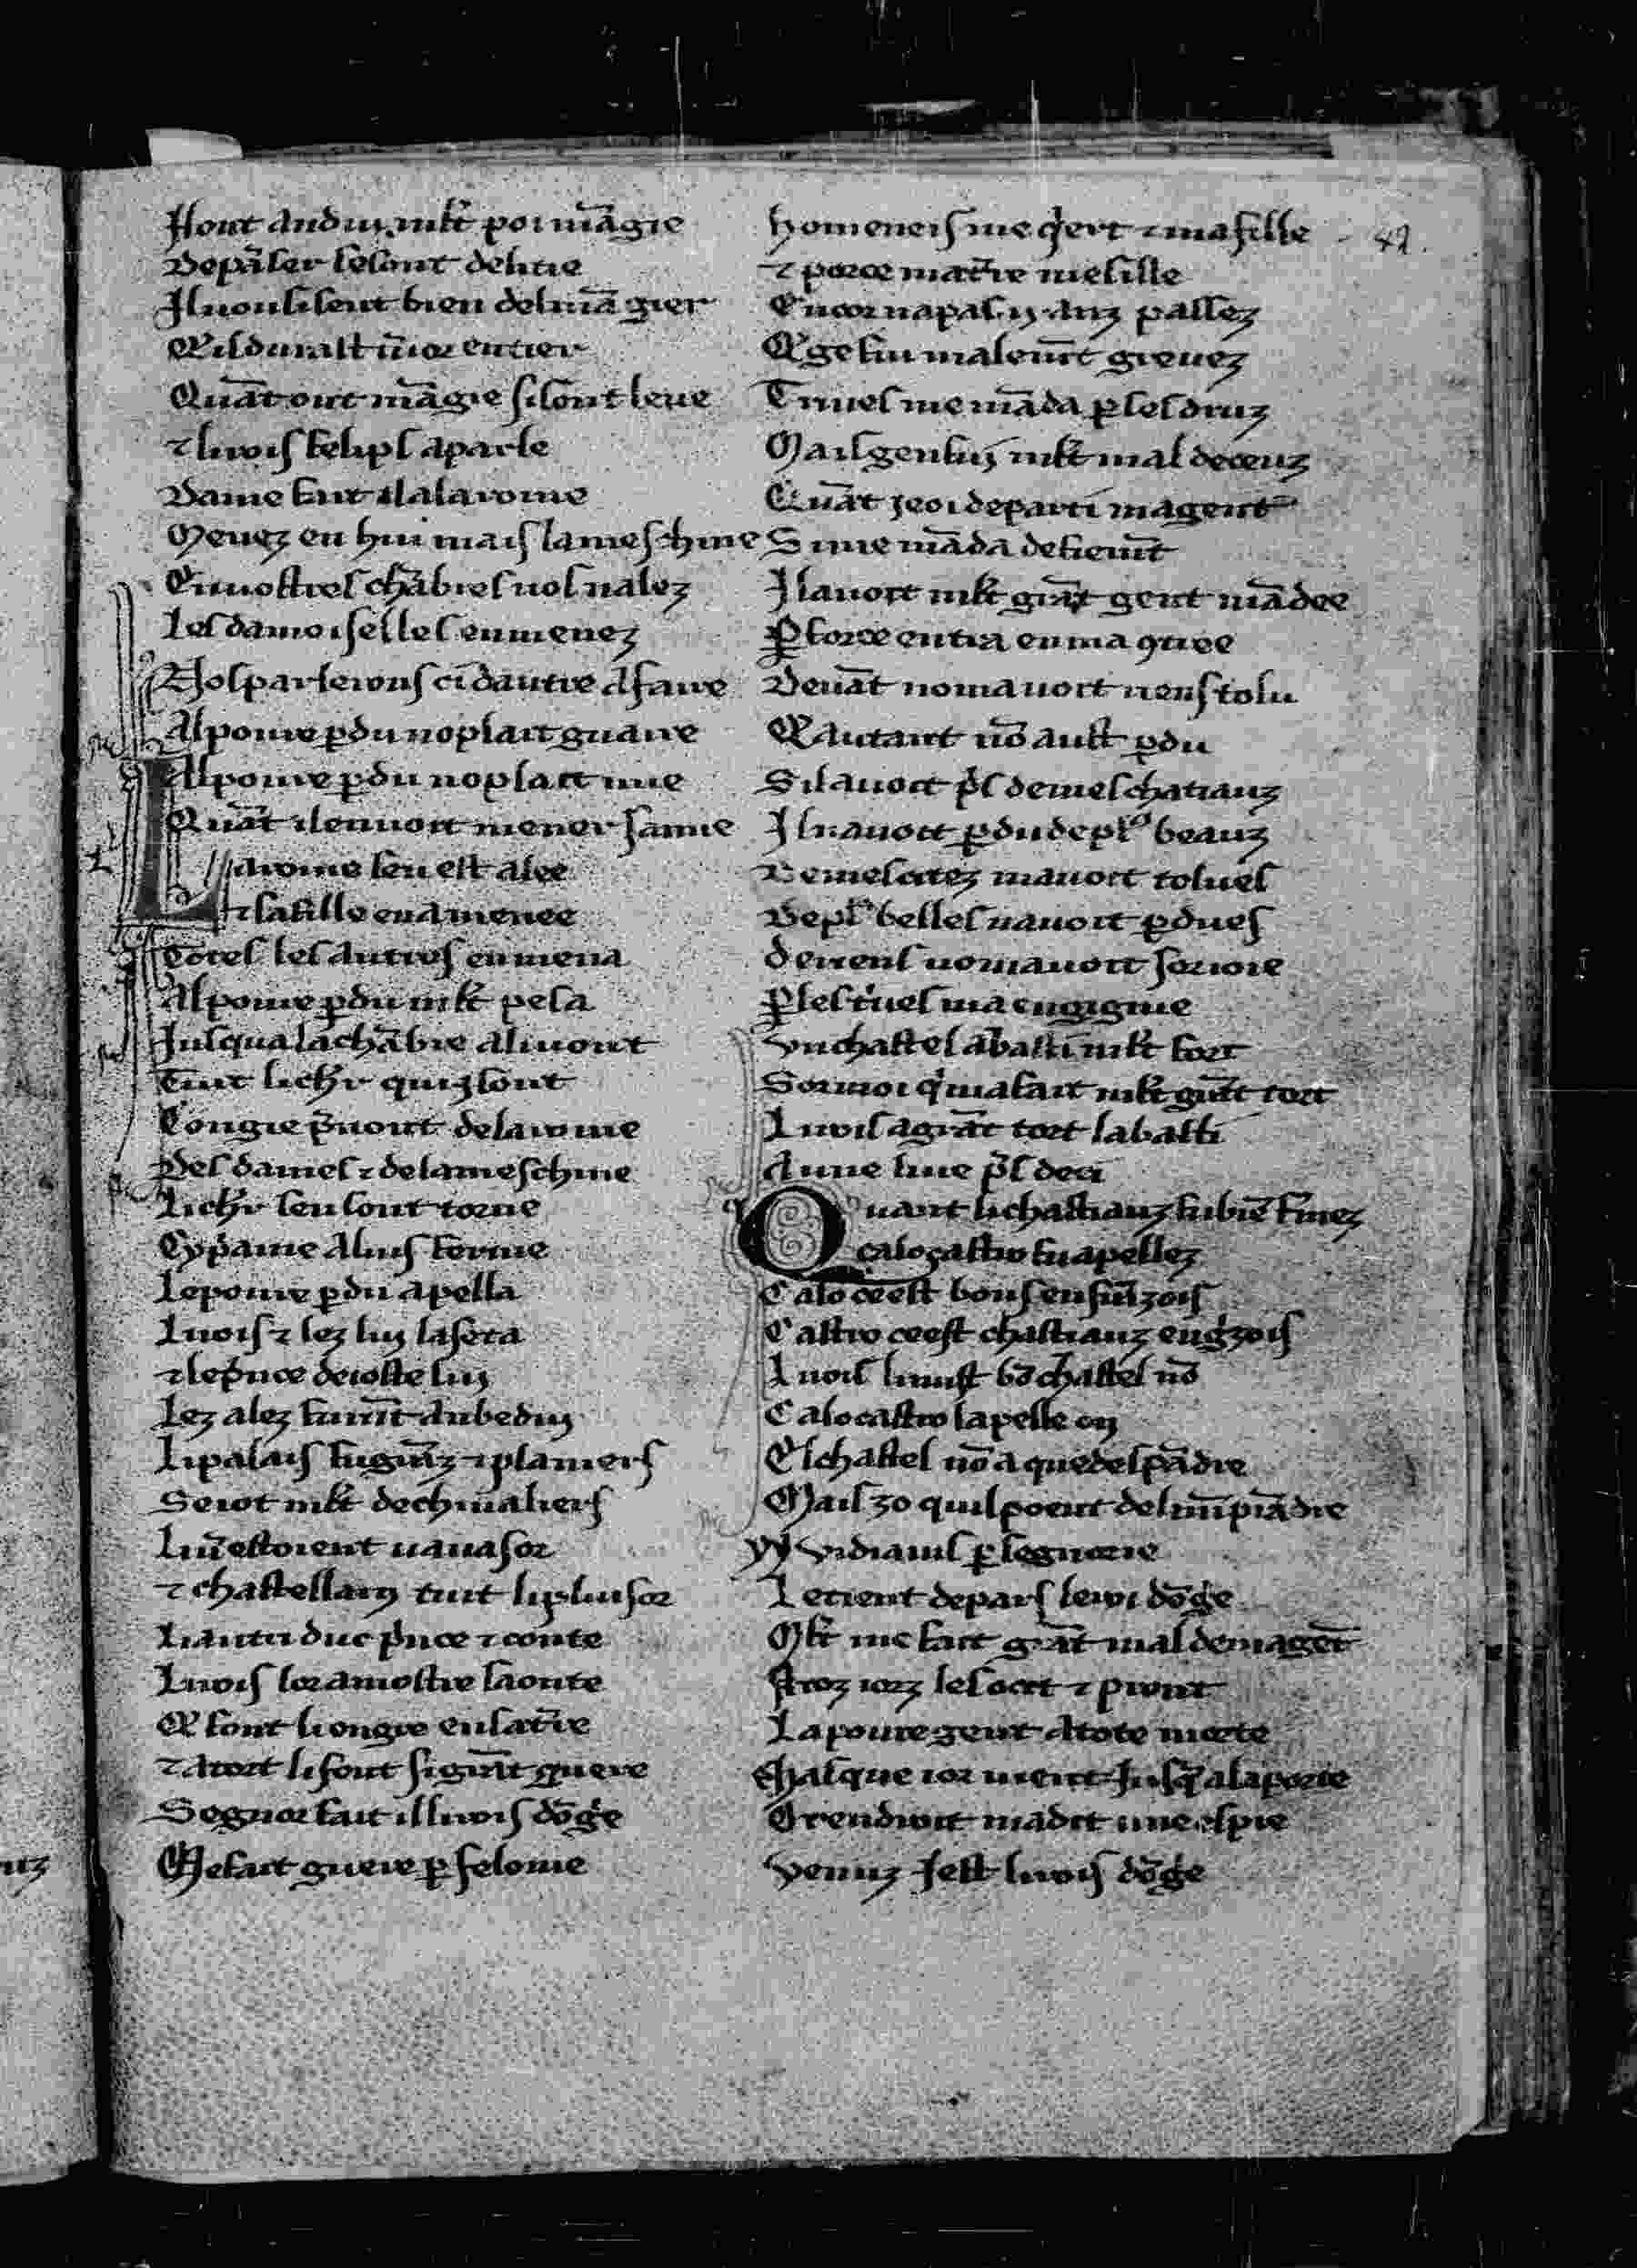 Nont andui ml't poi mãgie
De parler se sont delitie
Il nou fisent bien del mãgier
Q'il durast .i. ior entier
Quãt ont mãgie si sont leue
⁊ li rois felips a parle
Dame fait il a la roine
Menez en hui mais la meschine
En uostres chãbres uos nalez
Les damoiselles en menez
Nos parlerons ci dautre afaire
Al poure p̱du no plait guaire
Al poure p̱du no plait mie
Quãt il en uoit mener samie
La roine sen est alee
⁊ sa fille en a menee
Totes les autres en mena
Al poure p̱du ml't pesa
Jusqua la chãbre a li uont
Tuit li cheṽr qui i sont
Congie p̃nont de la roine
Des dames ⁊ de la meschine
Li cheṽr sen sont torne
Lepoure p̱du apella
Li rois ⁊ lez lui lasera
⁊ le p̃nce de ioste lui
Lez a lez furẽt anbedui
Li palais fu grãz ⁊ planiers
Se i ot ml't de cheualiers
Li ũ estoient uauasor
⁊ chastellain tuit li plusor
Li autri duc p̃nce ⁊ conte
Li rois lor a mostre sa onte
Q' font li ongre en sa tẽre
⁊ a tort li font si grãt guere
Segnor fait il li rois dõg̃e
Me fait guere p̱ felonie
Homeneis me q̃ert ⁊ ma fille
⁊ por ce ma tẽre me sille
Encor na pas .ii. anz passez
Q' ge fui malemẽt greuez
Triues me mãda p̱ ses druz
Mais gen fui ml't mal deceuz
Quãt ieo i departi ma gent
Si me mãda defiemẽt
Il auoit ml't grãt gent mãdee
P̱ force entra en ma ꝯtree
Deuãt no mauoit riens tolu
Q' autant nõ aust p̱du
Sil auoit p̃s de mes chatiauz
Il rauoit p̱du de plus beauz
De mes citez mauoit tolues
De plus belles rauoit p̱dues
De riens no mauoit soriore
P̱ ses triues ma engignie
Un chastel a basti ml't fort
Sor moi q̃ ma fait ml't grãt tort
Li rois a grãt tort la basti
A une liue p̃s de ci
Quant li chastiauz fu biẽ fr̃mez
Calocastro fu apellez
Calo ce est bons en frãzois
Castro ce est chastiauz en g̃zois
Li rois li mist bõ chastel nõ
Calocastro lapelle on
El chastel nõ a que despãdre
Mais zo quil poent del mĩ prãdre
Widiaus p̱ segnorie
Le tient de pars le roi dõg̃e
Ml't me fait grãt mal de ma gẽt
Toz iorz les ocit ⁊ prent
La poure gent a tote morte
Chasque ior uient iusq̃ a la porte
Orendroit madit une espie
Venuz i est li rois dõg̃e